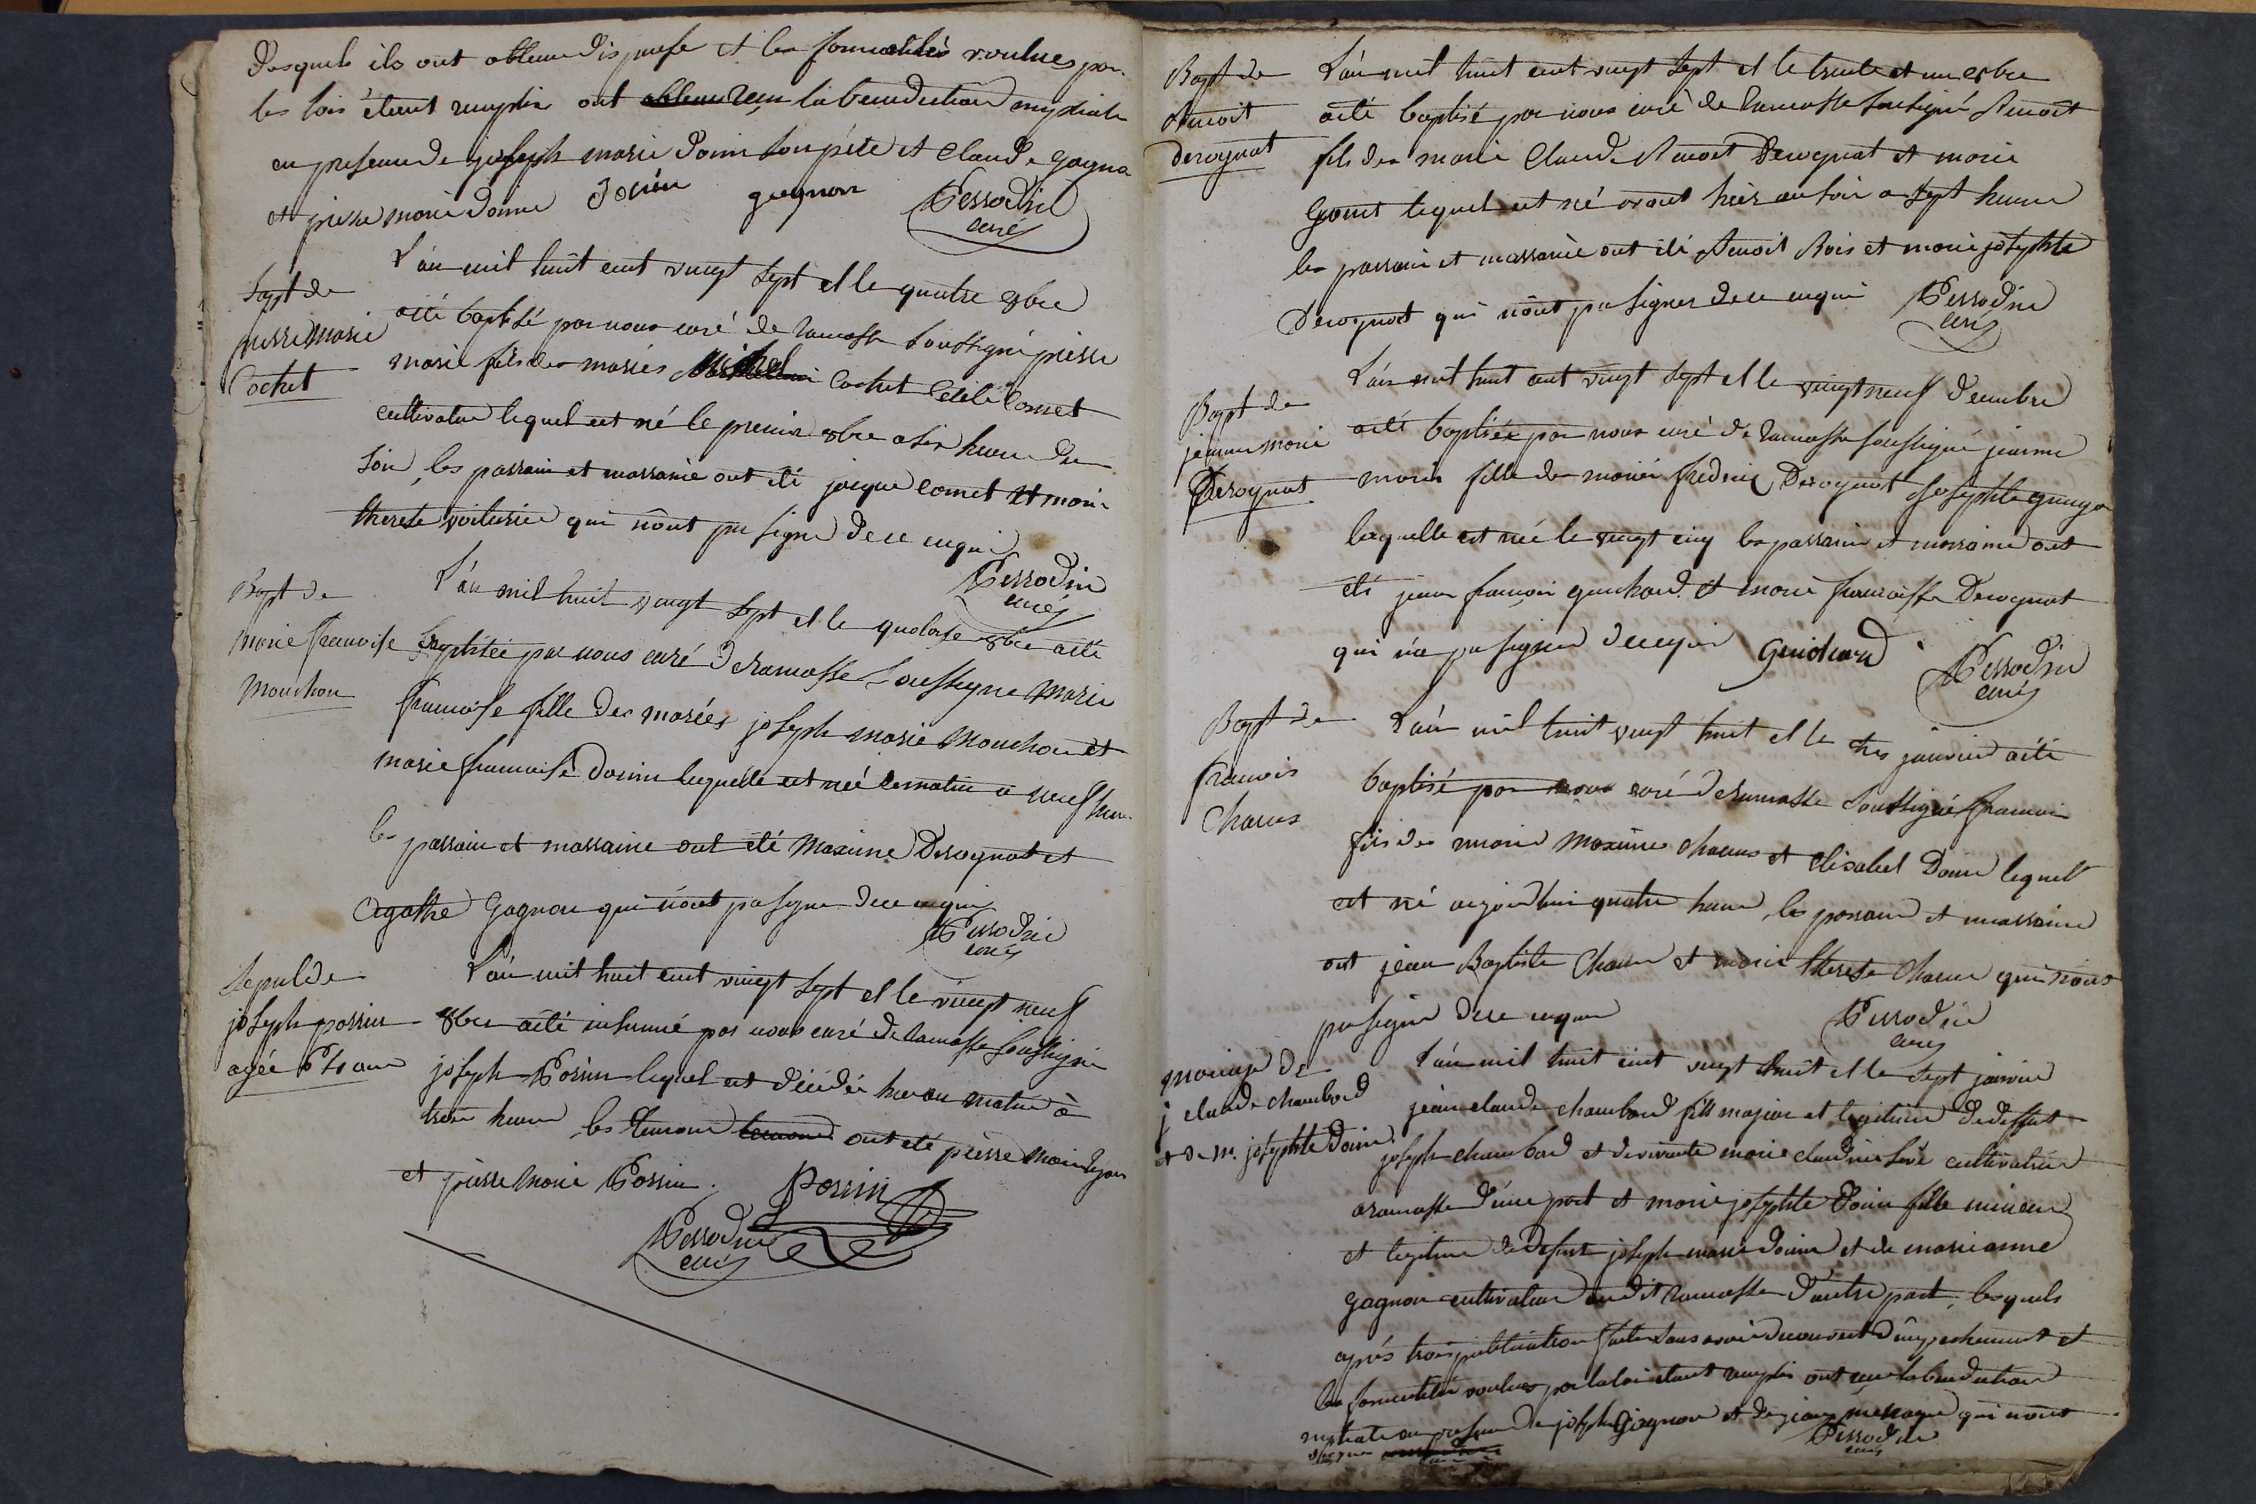 desquels ils ont obtenu dispense et les formalités voulues par
les lois étant remplies ont obtenu reçu la benediction nuptiale
en presence de joseph marie douin son pére et Claude gagnon
et pierre marie douin Douin gagnon Perrodin
curé
Bapt de
pierre marie
Cochet
L'an mil huit cent vingt sept et le quatre 8bre
a été baptisé par nous curé de ramasse soussigné pierre
marie fils des mariés Michel Cochet Cecile Comet
cultivateur lequel est né le premier 8bre a six heure du
soir, les parrain et marraine ont été jacque Comet et marie
therese voiturier qui n'ont pu signer de ce enquis
Perrodin
curé
Bapt de
marie francoise
Mouchon
L'an mil huit vingt sept et le quatorse 8bre a été
baptisée par nous curé de ramasse soussigne Marie
francoise fille des mariés joseph marie Mouchon et
marie francoise douin laquelle est née le matin a neuf heure
les parrain et marraine ont été Maxime Derognat et
agathe Gagnon qui n'ont pu signer de ce enquis
Perrodin
curé
Sepul de
joseph possin
agée
L'an mil huit cent vingt sept et le vingt neuf
8bre a été inhumé par nous curé de ramasse soussigné
joseph Possin lequel est décédé hier au matin à
trois heure les temoins temoins ont été pierre Marie
et pierre Marie Possin. Possin
Perrodin
curé
Bapt de
Benoit
derognat
L'an mil huit cent vingt sept et le trente et un 8bre
a été baptisé par nous curé de ramasse soussigné Benoit
fils des marié Claude Benoit Derognat et marie
lequel est né avant hièr au soir a sept heure
les parrain et marraine ont été Benoit Bois et marie josephte
Derognat qui n'ont pu signer de ce enquis Perrodin
curé
Bapt de
jeanne marie
Derognat
L'an mil huit cent vingt sept et le vingt neuf decembre
a été baptisée par nous curé de ramasse soussigné jeanne
marie fille des mariés frederic Derognat josephte
laquelle est née le vingt cinq les parrain et marraine ont
été jean francois guichard et marie francoisse Derognat
qui n'a pu signer de enquis Guichard Perrodin
curé
Bapt de
francois
Charus
L'an mil huit vingt huit et le trois janvier a été
baptisé par nous curé de ramasse soussigné francois
fils des marié Maxime charus et elisabet Douin lequel
est né aujourd'hui quatre heure, les parrain et marraine
ont jean Baptiste Charus et marie therese charus qui n'ont
pu signer de ce enquis Perrodin
curé
mariage de
j claude chambard
et de m. josephte Douin
L'an mil huit cent vingt huit et le sept janvier
jean claude chambard fils majeur et legitime de deffunt
joseph chambard et de vivante marie claudine Sève cultivateur
a ramasse d'une part et marie josephte Douin fille mineure
et legitime de defunt joseph marie douin et de marie anne
gagnon cultivateur au dit ramasse d'autre part, lesquels
aprés trois publication faite sans avoir decouvert d'empechement et
les formalités voulues par la loi etant remplies ont reçu la benediction
nuptiale en presence de joseph Gagnon et de jean qui n'ont
Perrodin
curé